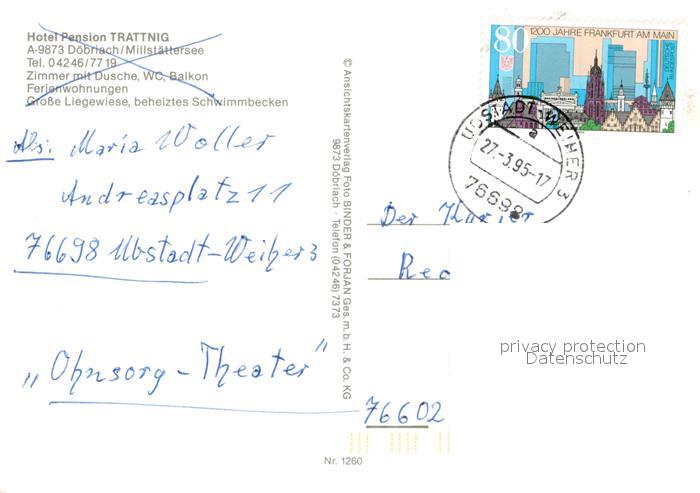 Hotel Pension TRATTNIG
A-9873 Döbriach/Millstättersee
Tel. 04246/7719
Zimmer mit Dusche, WC, Balkon
Ferienwohnungen
Große Liegewiese, beheiztes Schwimmbecken
Abs.: Maria Woller
Andreasplatz 11
76698 Ubstadt-Weiher 3
"Ohnsorg-Theater"
© Ansichtskartenverlag Foto BINDER & FORJAN Ges. m. b. H. & Co. KG
9873 Döbriach - Telefon (04246) 7373
Nr. 1260
80
1200 JAHRE FRANKFURT AM MAIN
DEUTSCHE BUNDESPOST
UBSTADT-WEIHER 3
a
27.-3.95-17
76698
Der Kurier
Red
76602
privacy protection
Datenschutz